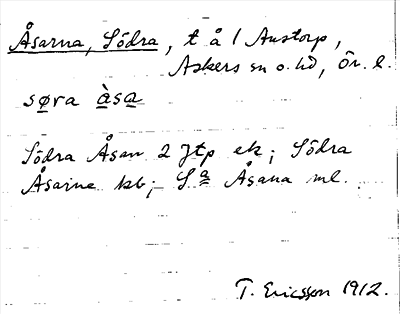 Åsarna, Södra, t å / Austorp,
Askers sn o. hd, Ör. l.
søra àsa
Södra Åsan 2 Jtp ek; Södra
Åsarne kb; Sᵃ Åsana ml.
T. Ericsson 1912.